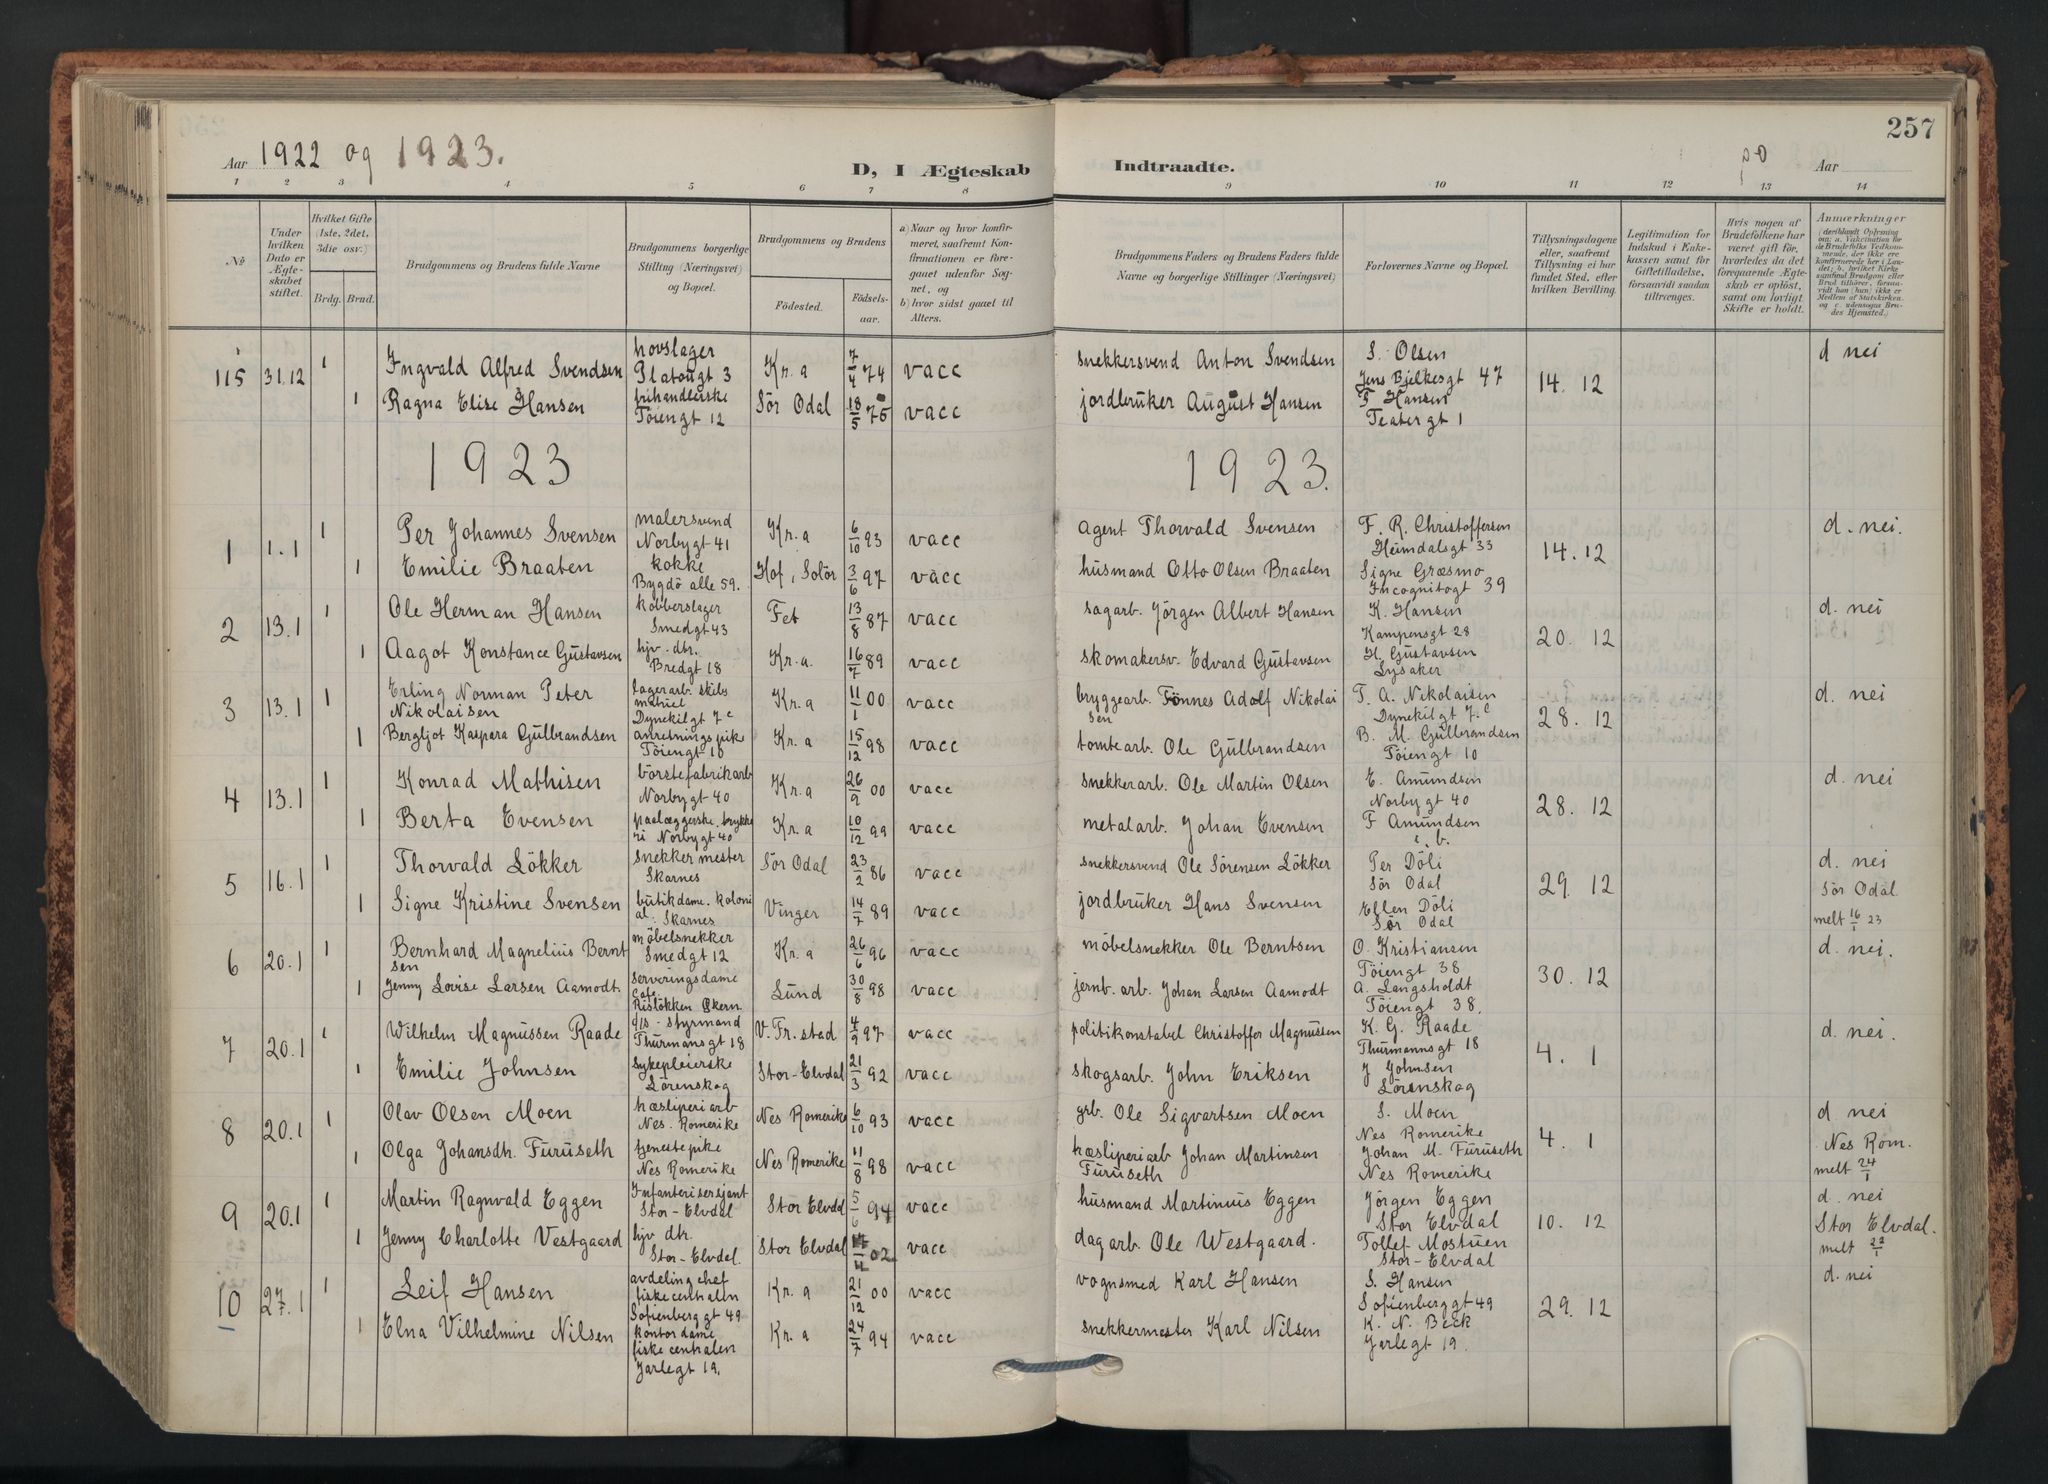 257
Aar 1922 og 1923.
D, I Ægteskab Indtraadte.
Aar
1 2 3 4 5 6 7 8 9 10 11 12 13 14
No
Under hvilken Dato er Ægteskabet stiftet.
Hvilket Gifte (1ste, 2det, 3die osv.)
Brdg. Brud.
Brudgommens og Brudens fulde Navne
Brudgommens borgerlige Stilling (Næringsvei) og Bopæl.
Brudgommens og Brudens
Fødested. Fødselsaar.
a) Naar og hvor konfirmeret, saafremt Konfirmationen er foregaaet udenfor Sognet, og
b) hvor sidst gaaet til Alters.
Brudgommens Faders og Brudens Faders fulde Navne og borgerlige Stillinger (Næringsvei)
Forlovernes Navne og Bopæl.
Tillysningsdagene eller, saafremt Tillysning ei har fundet Sted, efter hvilken Bevilling.
Legitimation for Indskud i Enkekassen samt for Giftetilladelse, forsaavidt saadan tiltrænges.
Hvis nogen af Brudefolkene har været gift før, hvorledes da det foregaaende Ægteskab er opløst, samt om lovligt Skifte er holdt.
Anmærkninger
115 31.12 1 Ingvald Alfred Svendsen hovslager Platougt 3 Kr.a 7/4 74 vacc snekkersvend Anton Svendsen S. Olsen Jens Bjelkesgt 47 14.12 d nei
1 Ragna Elise Hansen frihandlerske Töiengt 12 Sör Odal 18/5 75 vacc jordbruker August Hansen F Hansen Teatergt 1
1923 1923.
1 1.1 1 Per Johannes Svensen malersvend Norbygt 41 Kr.a 6/10 93 vacc agent Thorvald Svensen F. R. Christoffersen Heimdalsgt 33 14.12 d. nei.
1 Emilie Braaten kokke Bygdö alle 59. Hof, Solör 3/6 97 vacc husmand Otto Olsen Braaten Signe Græsmo Incognitogt 39
2 13.1 1 Ole Herman Hansen kobberslager Smedgt 43 Fet 13/8 87 vacc sagarb. Jörgen Albert Hansen K. Hansen Kampensgt 28 20.12 d. nei
1 Aagot Konstance Gustavsen hjv. dtr. Bredgt 18 Kr.a. 16/7 89 vacc skomakersv. Edvard Gustavsen H. Gustavsen Lysaker
3 13.1 1 Erling Norman Peter Nikolaisen lagerarb. skibs Dynekilgt 7c Kr.a 11/1 00 vacc bryggearb. Tönnes Adolf Nikolaisen T. A. Nikolaisen Dynekilgt 7.c 28.12 d. nei
1 Bergljot Kaspara Gulbrandsen anretningspike Töiengt 10 Kr.a 15/12 98 vacc tomtearb. Ole Gulbrandsen B. M. Gulbrandsen Töiengt 10
4 13.1 1 Konrad Mathisen börstefabrikarb Norbygt 40 Kr.a 26/9 00 vacc snekkerarb. Ole Martin Olsen E. Amundsen Norbygt 40 28.12 d. nei
1 Berta Evensen paalæggerske. trykkeri Norbygt 40 Kr.a 10/12 99 vacc metalarb. Johan Evensen F Amundsen
5 16.1 1 Thorvald Lökker snekkermester Skarnes Sör Odal 23/2 86 vacc snekkersvend Ole Sörensen Lökker Per Döli Sör Odal 29.12 d. nei Sör Odal melt 16/1 23
1 Signe Kristine Svensen butikdame. kolonial. Skarnes Vinger 14/7 89 vacc jordbruker Hans Svensen Ellen Döli Sör Odal
6 20.1 1 Bernhard Magnelius Berntsen möbelsnekker Smedgt 12 Kr.a 26/6 96 vacc möbelsnekker Ole Berntsen O. Kristiansen Töiengt 38 30.12 d. nei.
1 Jenny Lovise Larsen Aamodt. serveringsdame Cafe Rislökken Ökern Lund 30/8 98 vacc jernb. arb. Johan Larsen Aamodt A. Langsholdt Töiengt 38.
7 20.1 1 Wilhelm Magnussen Raade d/s styrmand Thurmansgt 18 V. Fr.stad 4/9 97 vacc politikonstabel Christoffer Magnussen K. G. Raade Thurmannsgt 18 4.1 d. nei.
1 Emilie Johnsen sykepleierske Lörenskog Stor-Elvdal 21/3 92 vacc skogsarb. John Eriksen J Johnsen Lörenskog
8 20.1 1 Olav Olsen Moen træsliperiarb Nes. Romerike Nes Romerike 6/10 93 vacc grb. Ole Sigvartsen Moen S. Moen Nes Romerike 4.1 d. nei Nes Rom. melt 24/1
1 Olga Johansdtr. Furuseth tjenestepike Nes Romerike Nes Romerike 11/8 98 vacc træsliperiarb Johan Martinsen Furuseth Johan M. Furuseth Nes Romerike
9 20.1 1 Martin Ragnvald Eggen Infanterisersjant Stor-Elvdal Stor Elvdal 5/6 94 vacc husmand Martinius Eggen Jörgen Eggen Stor Elvdal 10.12 d. nei Stor Elvdal. melt 22/1
1 Jenny Charlotte Vestgaard hjv dtr. Stor-Elvdal. Stor Elvdal 02 vacc dagarb. Ole Westgaard. Tollef Mostuen Stor-Elvdal
10 27.1 1 Leif Hansen avdeling chef fiskecentralen Sofienberggt 49 Kr.a 21/12 00 vacc vognsmed Karl Hansen S. Hansen Sofienberggt 49 29.12 d. nei
1 Elna Vilhelmine Nilsen kontordame fiske centralen Jarlegt 19. Kr.a 24/7 94 vacc snekkermester Karl Nilsen K. N. Beck Jarlegt 19.